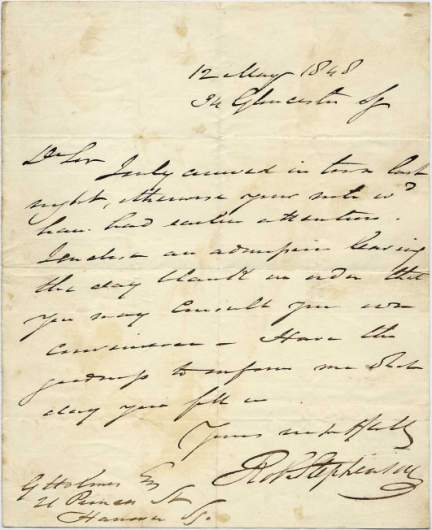 12 May 1848
34 Gloucester Sq
Dr Sir
I only arrived in town last
night, otherwise your note wd
have had earlier attention.
I enclose an admission leaving
the day blank in order that
you may consult your own
convenience – Have the
goodness to inform me what
day you fill in.
Yours
Robt Stephenson
G Holmes Esq
21 Princes St
Hanover Sq.